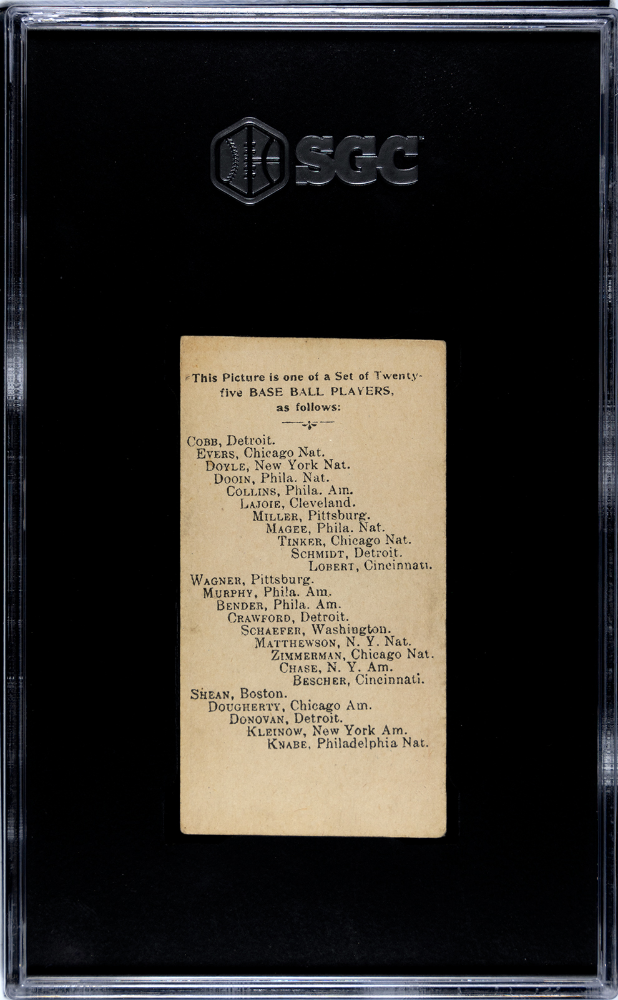 SGC
This Picture is one of a Set of Twenty-
five BASE BALL PLAYERS,
as follows:
COBB, Detroit.
EVERS, Chicago Nat.
DOYLE, New York Nat.
DOOIN, Phila. Nat.
COLLINS, Phila. Am.
LAJOIE, Cleveland.
MILLER, Pittsburg.
MAGEE, Phila. Nat.
TINKER, Chicago Nat.
SCHMIDT, Detroit.
LOBERT, Cincinnati.
WAGNER, Pittsburg.
MURPHY, Phila. Am.
BENDER, Phila. Am.
CRAWFORD, Detroit.
SCHAEFER, Washington.
MATTHEWSON, N. Y. Nat.
ZIMMERMAN, Chicago Nat.
CHASE, N. Y. Am.
BESCHER, Cincinnati.
SHEAN, Boston.
DOUGHERTY, Chicago Am.
DONOVAN, Detroit.
KLEINOW, New York Am.
KNABE, Philadelphia Nat.